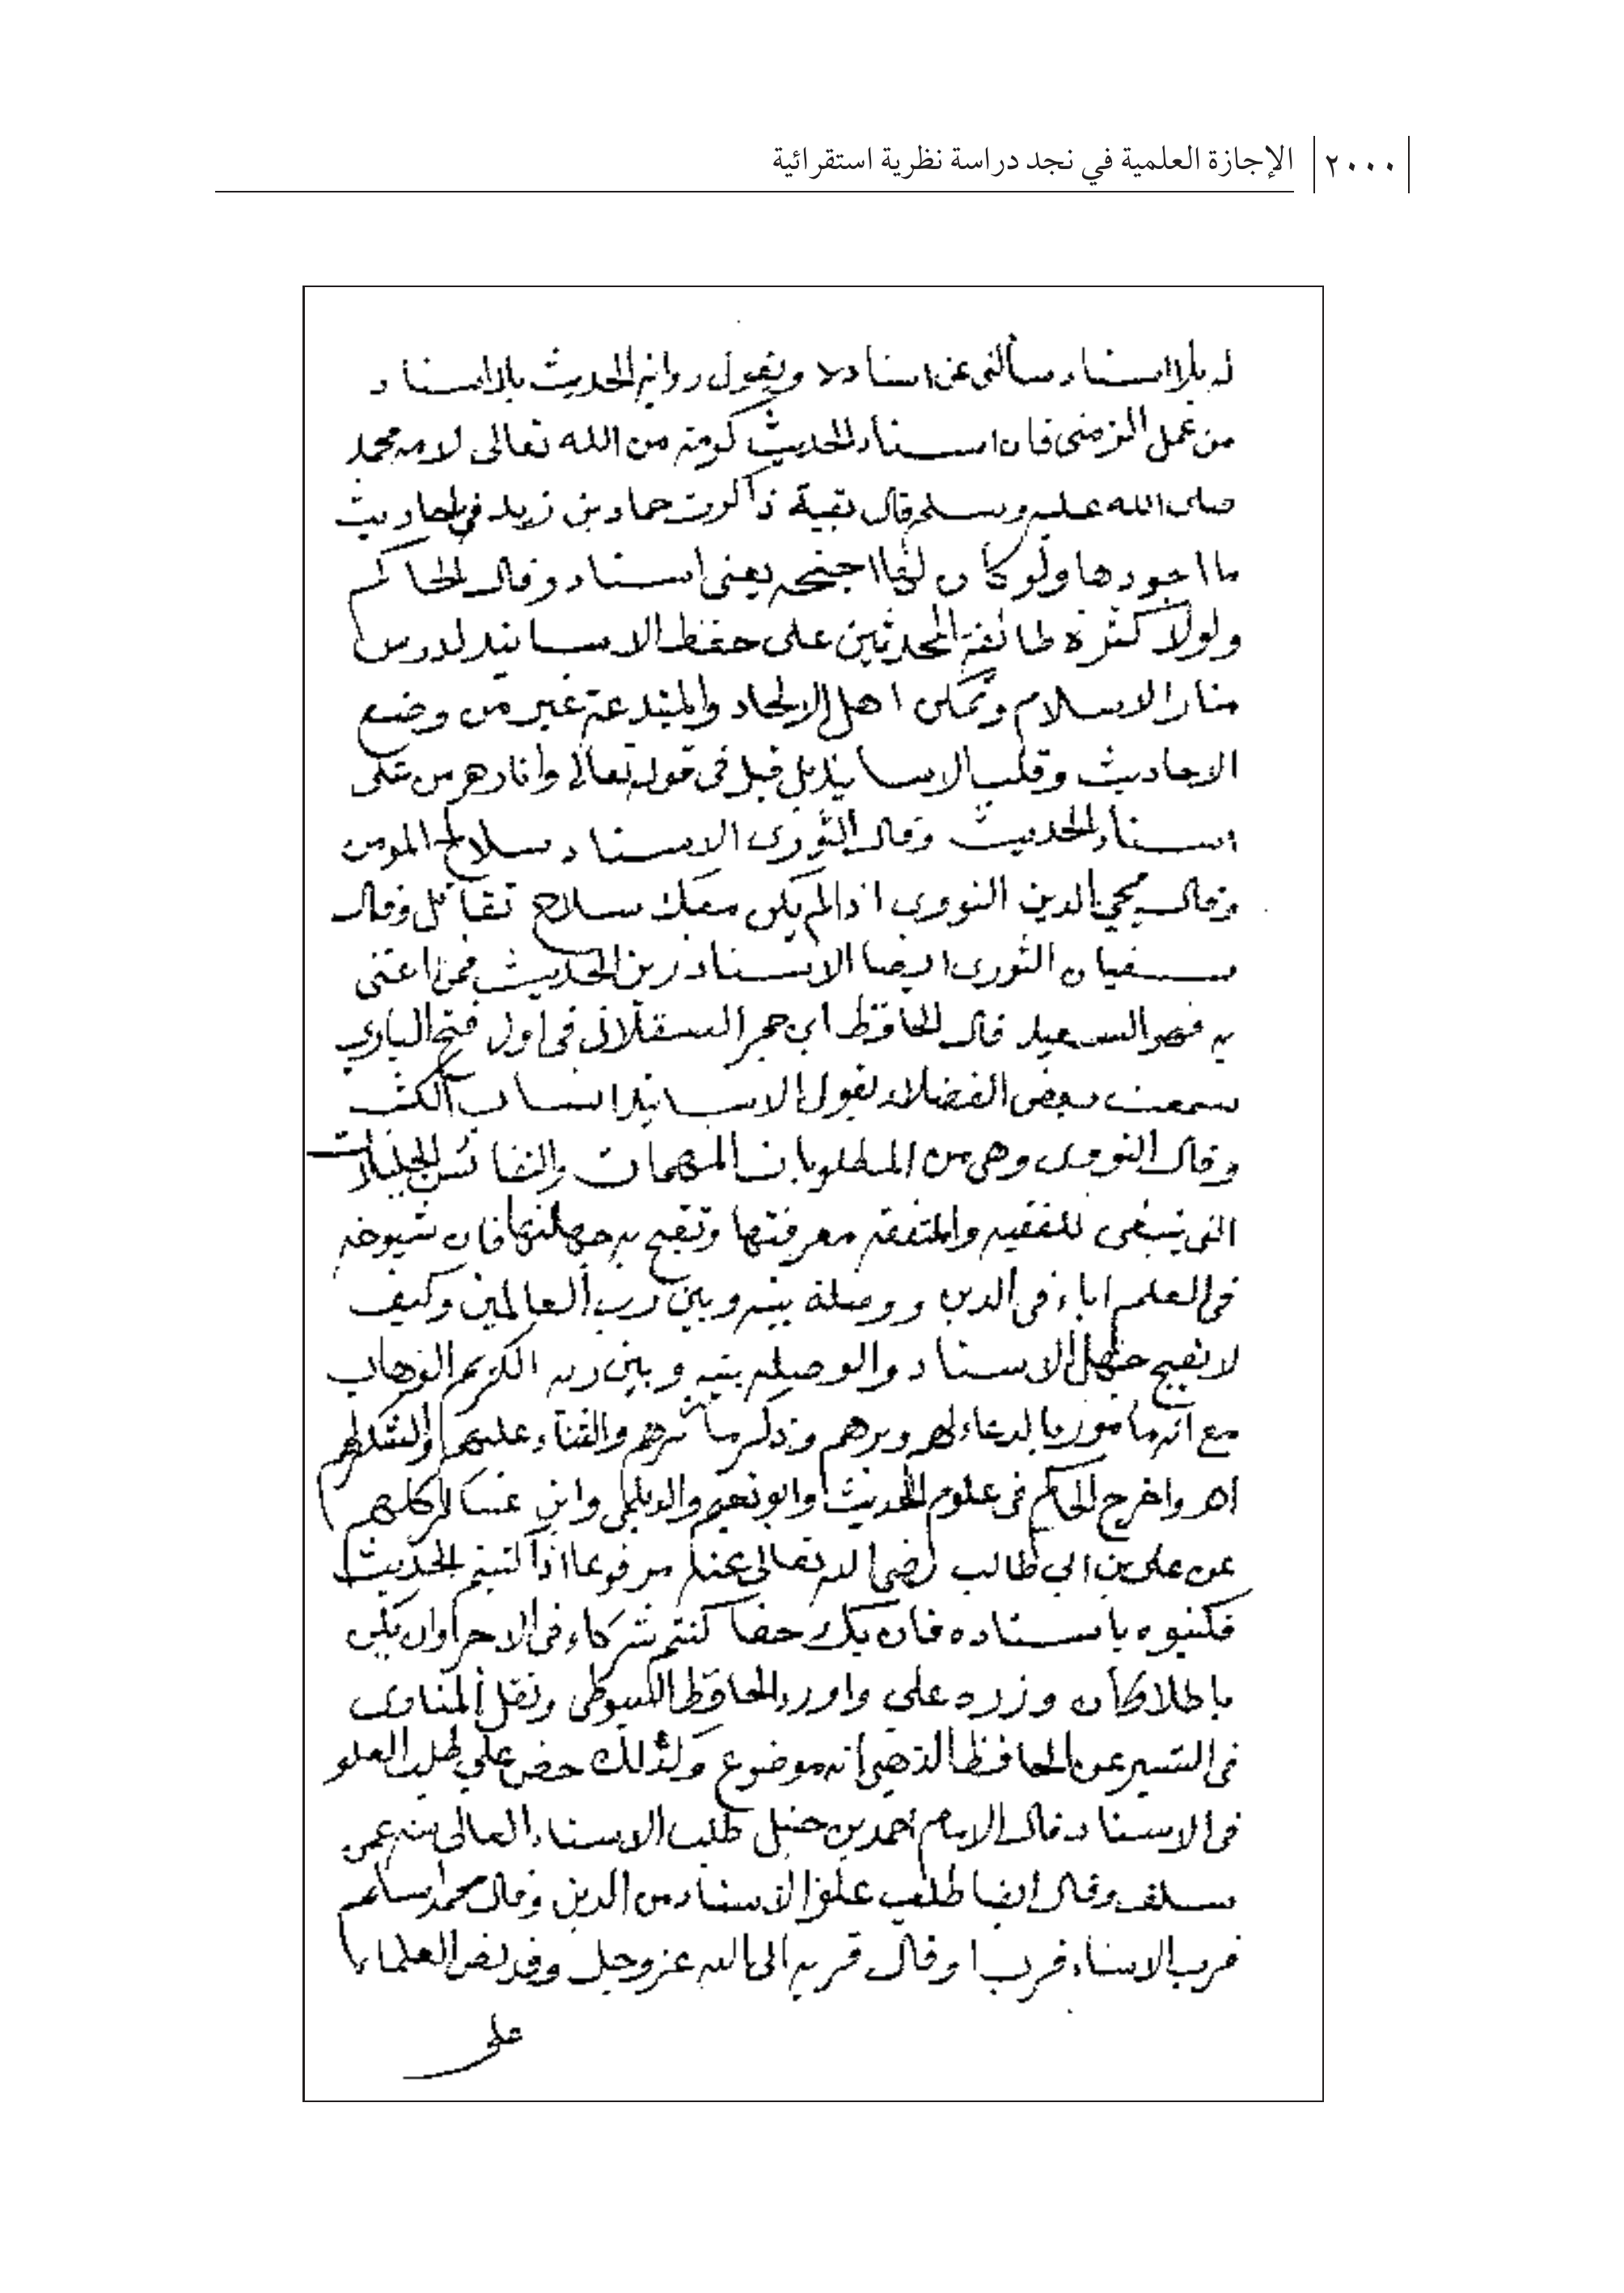 ٢٠٠٠ الإجازة العلمية في نجد دراسة نظرية استقرائية
له بلا اسناد سألني عن اسناده ويقول رواية الحديث بلا اسناد
من عمل الزمنى فان اسناد الحديث كرمة من الله تعالى لامه محمد
صلى الله عليه وسلم قال بقية ذاكرت حماد بن زيد في احاديث
ما اجودها ولو كان لها اجنحه يعني اسناد وقال الحاكم
ولولا كثرة طائفة المحدثين على حفظ الاسانيد لدرس
منار الاسلام وتمكن اهل الالحاد والمبتدعة من وضع
الاحاديث وقلب الاسانيد بل قيل في قوله تعالى واثارهم من على
اسناد الحديث وقال الثوري الاسناد سلاح المومن
وقال محيي الدين النووي اذا لم يكن معك سلاح تقاتل وقال
سفيان الثوري ايضا الاسناد زين الحديث فمن اعتنى
به فهو السعيد قال الحافظ ابن حجر العسقلاني في اول فتح الباري
سمعت بعض الفضلاء يقول الاسانيد انساب الكتب
وقال النووي وهي من المطلوبات المهمات والنفائس الجليلات
التي ينبغي للفقيه والمتفقه معرفتها وتقبح به جهالتها فان شيوخه
في العلم اباء في الدين ووصلة بينه وبين رب العالمين وكيف
لا يقبح جهل الاسناد والوصله بينه وبين ربه الكريم الوهاب
مع انه مأمور بالدعاء لهم وبرهم وذكر مأثرهم والثناء عليهم والشكر لهم
اهـ واخرج الحاكم في علوم الحديث وابو نعيم والديلمي وابن عساكر كلهم
عن علي بن ابي طالب رضي الله تعالى عنه مرفوعا اذا كتبتم الحديث
فكتبوه باسناده فان يك حقا كنتم شركاء في الاجر وان يكن
باطلا كان وزره على واورده الحافظ السيوطي ونقل المناوي
في التيسير عن الحافظ الذهبي انه موضوع ولذلك حض على طلب العلو
في الاسناد قال الامام احمد بن حنبل طلب الاسناد العالي سنه عمن
سلف وقال ايضا طلب علو الاسناد من الدين وقال محمد اسلم
قرب الاسناد قرب او قال قربه الى الله عز وجل وقد نص العلماء
على